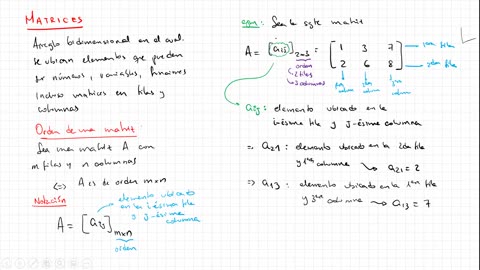 MATRICES
Arreglo bidimensional en el cual
se ubican elementos que pueden
ser números, variables, funciones
incluso matrices en filas y
columnas
Orden de una matriz:
Sea una matriz A con
m filas y n columnas
<=> A es de orden mxn
Notación
elemento ubicado
en la i-ésima fila
y j-ésima columna
A = [aij]mxn
orden
ejm: Sea la sgte matriz
A = [aij]2x3 = [1 3 7
2 6 8]
1era fila
2da fila
orden
2 filas
3 columnas
1era
2da
3era
aij: elemento ubicado en la
i-ésima fila y j-ésima columna
=> a21: elemento ubicado en la 2da fila
y 1era columna → a21 = 2
=> a13: elemento ubicado en la 1era fila
y 3era columna → a13 = 7